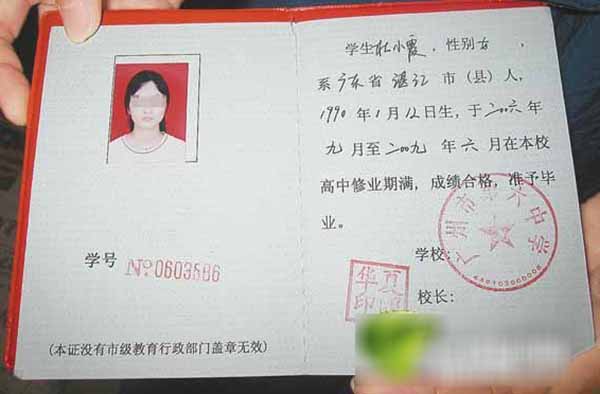 学号 No 0603586
(本证没有市级教育行政部门盖章无效)
学生杜小霞，性别女，
系广东省湛江市(县)人，
1990年1月12日生，于二〇〇六年
九月至二〇〇九年六月在本校
高中修业期满，成绩合格，准予毕
业。
学校：
广州市第六中学
校长：
华夏
印